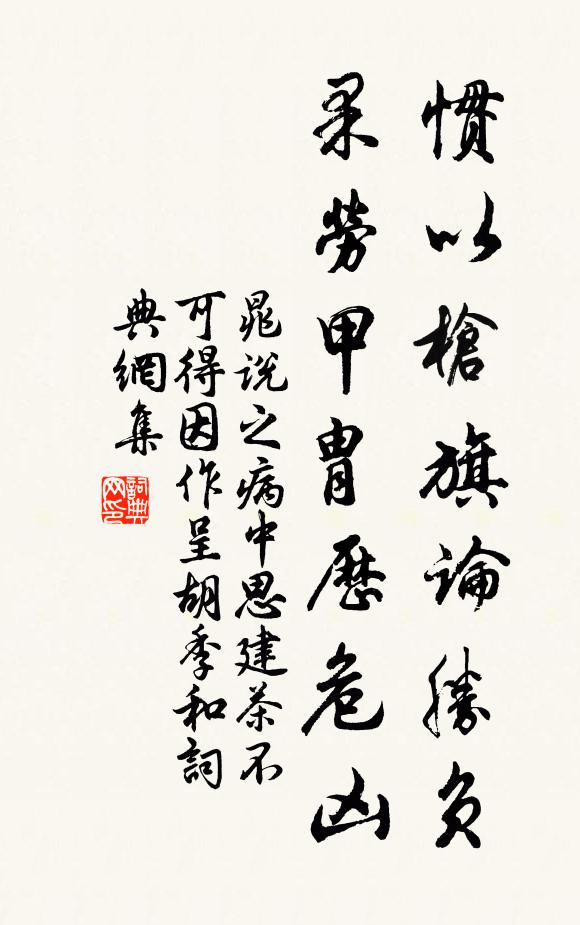 慣以槍旗論勝負
果勞甲冑歷危凶
晁說之病中思建茶不
可得因作呈胡季和詞
典網集
詞典
网印